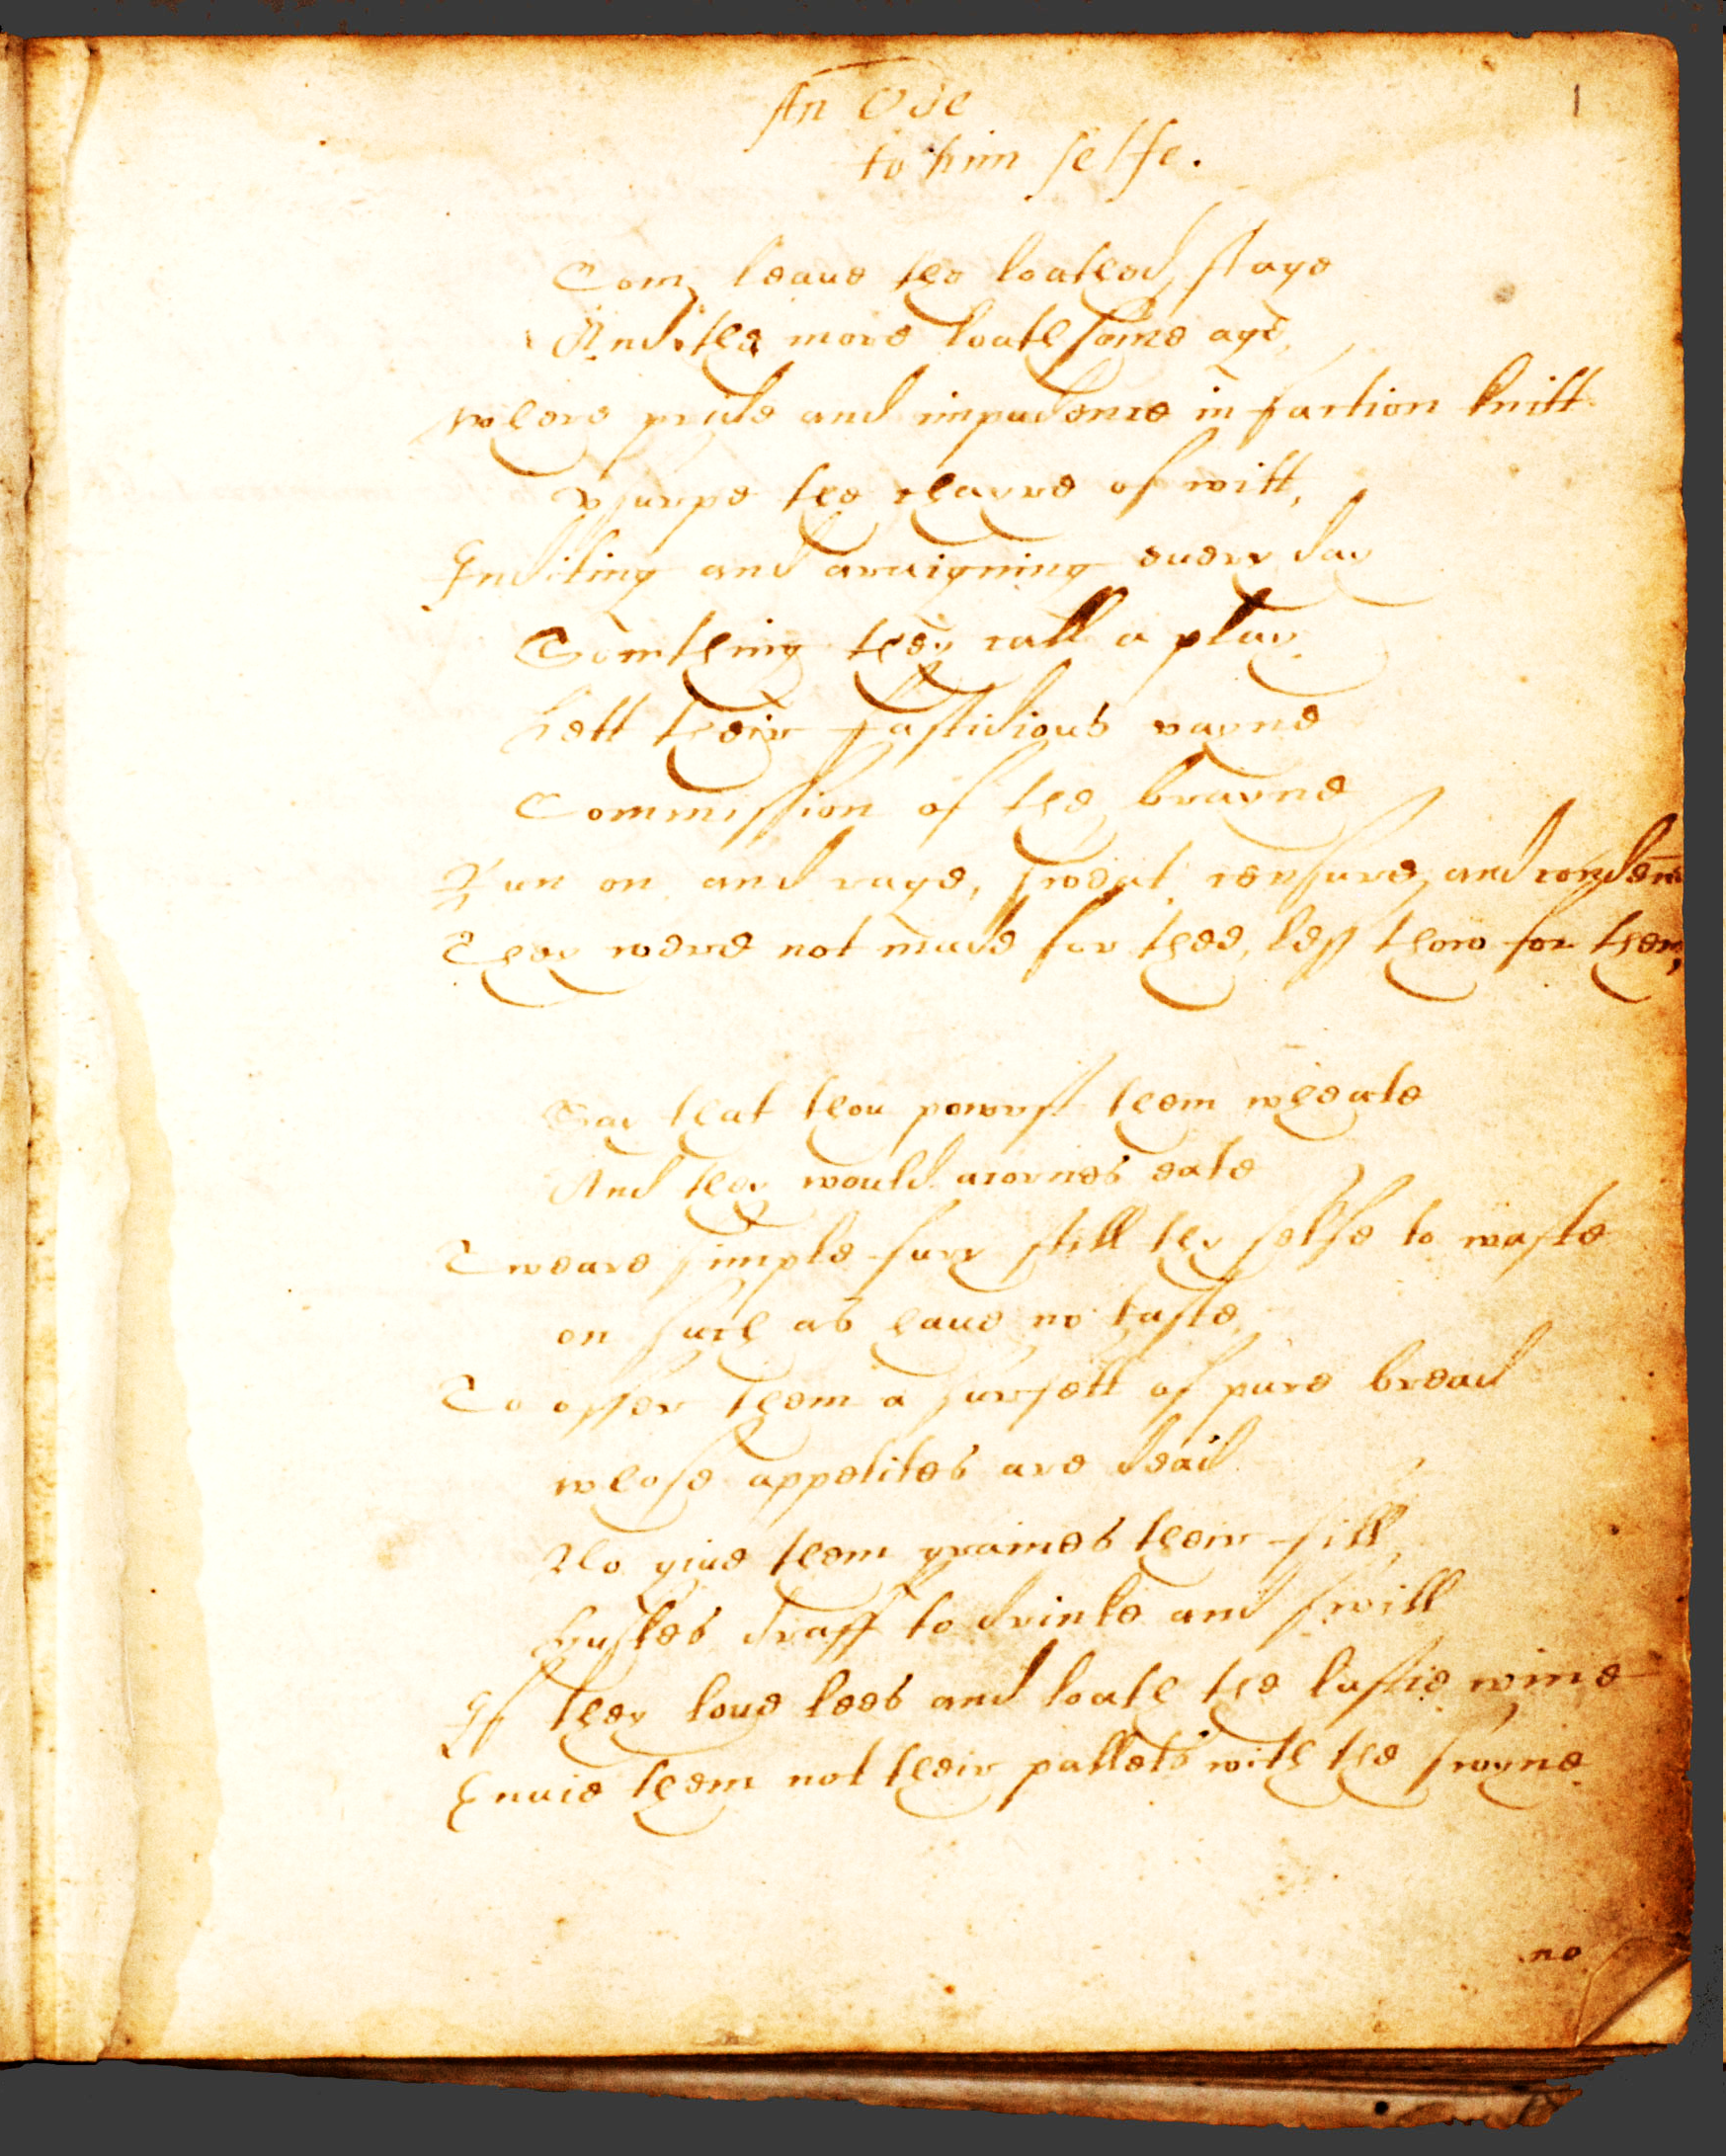 An Ode
1
to him selfe.
Com leaue the loathed stage
And the more loathsome age,
where pride and impudence in faction knitt
vsurpe the chayre of witt,
Inditing and arraigning euery day
Somthing they call a play.
Lett their fastidious vayne
Commission of the brayne
Run on and rage, sweat, censure, and condem̄
They were not made for thee, less thow for them,
Say that thou powrst them wheate
And they would acornes eate
Tweare simple fury still thy selfe to waste
on such as haue no taste,
To offer them a surfett of pure bread
whose appetites are dead
No giue them graines their fill,
huskes draff to drinke and swill
If they loue lees and loath the lustie wine
Enuie them not their pallets with the swyne
no